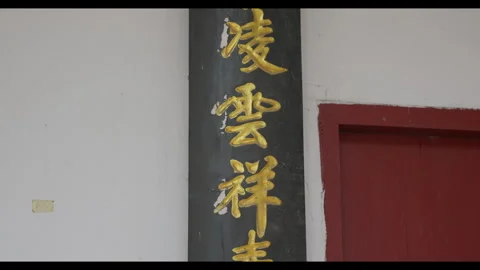 凌雲祥